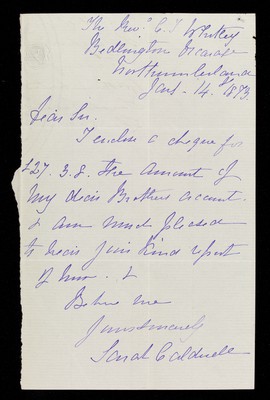 The Revd. C. T Whitley
Bedlington Vicarage
Northumberland
Jany. 14th 1873.
Dear Sir.
I enclose a cheque for
£27. 3. 8. the amount of
my dear Brothers account.
I am much pleased
to hear your kind report
of him. &
Believe me
yours sincerely
Sarah Caldwell